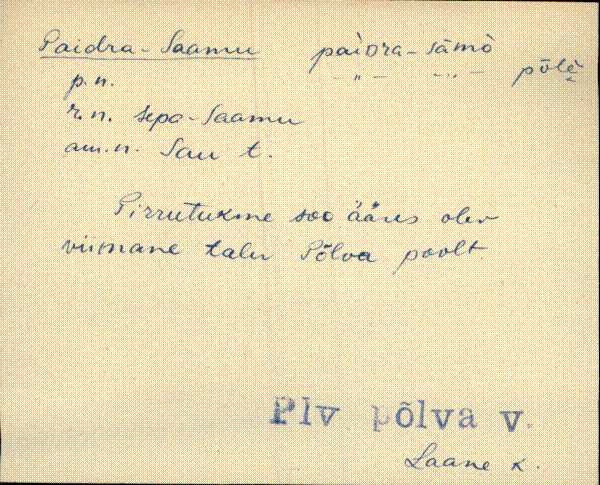 Paidra-Saamu paiDra-sämò
p.n. – „ – – „ – põlè
r.n. Sepa-Saamu
am.n. Sau t.
Pirrutukme soo ääres olev
viimane talu Põlva poolt
Plv põlva v.
Laane K.